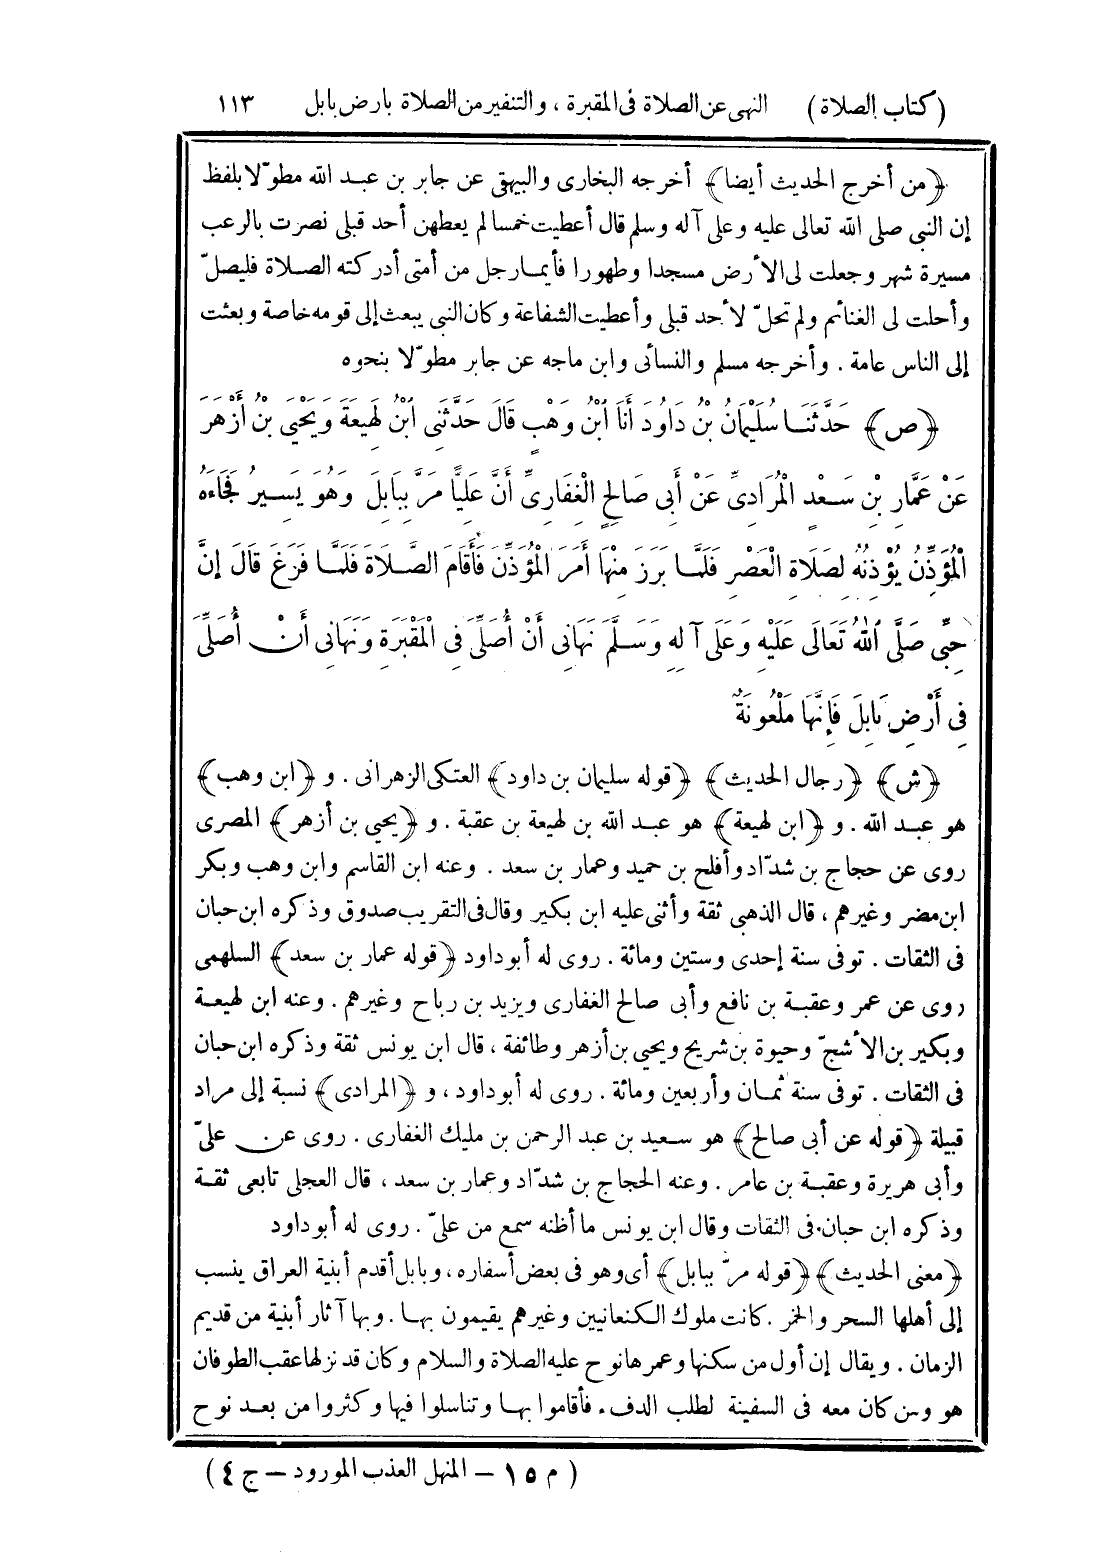 (كتاب الصلاة) النهى عن الصلاة فى المقبرة ، والتنفير من الصلاة بارض بابل ١١٣
﴿من أخرج الحديث أيضا﴾ أخرجه البخارى والبيهقى عن جابر بن عبد الله مطوّلا بلفظ
إن النبى صلى الله تعالى عليه وعلى آله وسلم قال أعطيت خمسا لم يعطهن أحد قبلى نصرت بالرعب
مسيرة شهر وجعلت لى الأرض مسجدا وطهورا فأيما رجل من أمتى أدركته الصلاة فليصلّ
وأحلت لى الغنائم ولم تحلّ لأحد قبلى وأعطيت الشفاعة وكان النبى يبعث إلى قومه خاصة وبعثت
إلى الناس عامة . وأخرجه مسلم والنسائى وابن ماجه عن جابر مطوّلا بنحوه
﴿ص﴾ حَدَّثَنَا سُلَيْمَانُ بْنُ دَاوُدَ أَنَا ابْنُ وَهْبٍ قَالَ حَدَّثَنِى ابْنُ لَهِيعَةَ وَيَحْيَى بْنُ أَزْهَرَ
عَنْ عَمَّارِ بْنِ سَعْدٍ الْمُرَادِىِّ عَنْ أَبِى صَالِحٍ الْغِفَارِىِّ أَنَّ عَلِيًّا مَرَّ بِبَابِلَ وَهُوَ يَسِيرُ فَجَاءَهُ
الْمُؤَذِّنُ يُؤْذِنُهُ لِصَلَاةِ الْعَصْرِ فَلَمَّا بَرَزَ مِنْهَا أَمَرَ الْمُؤَذِّنَ فَأَقَامَ الصَّلَاةَ فَلَمَّا فَرَغَ قَالَ إِنَّ
حِبِّى صَلَّى اللهُ تَعَالَى عَلَيْهِ وَعَلَى آلِهِ وَسَلَّمَ نَهَانِى أَنْ أُصَلِّىَ فِى الْمَقْبَرَةِ وَنَهَانِى أَنْ أُصَلِّىَ
فِى أَرْضِ بَابِلَ فَإِنَّهَا مَلْعُونَةٌ
﴿ش﴾ ﴿رجال الحديث﴾ ﴿قوله سليمان بن داود﴾ العتكى الزهرانى . و ﴿ابن وهب﴾
هو عبد الله . و ﴿ابن لهيعة﴾ هو عبد الله بن لهيعة بن عقبة . و ﴿يحيى بن أزهر﴾ المصرى
روى عن حجاج بن شدّاد وأفلح بن حميد وعمار بن سعد . وعنه ابن القاسم وابن وهب وبكر
ابن مضر وغيرهم ، قال الذهبى ثقة وأثنى عليه ابن بكير وقال فى التقريب صدوق وذكره ابن حبان
فى الثقات . توفى سنة إحدى وستين ومائة . روى له أبو داود ﴿قوله عمار بن سعد﴾ السلهمى
روى عن عمر وعقبة بن نافع وأبى صالح الغفارى ويزيد بن رباح وغيرهم . وعنه ابن لهيعة
وبكير بن الأشجّ وحيوة بن شريح ويحيى بن أزهر وطائفة ، قال ابن يونس ثقة وذكره ابن حبان
فى الثقات . توفى سنة ثمان وأربعين ومائة . روى له أبو داود ، و ﴿المرادى﴾ نسبة إلى مراد
قبيلة ﴿قوله عن أبى صالح﴾ هو سعيد بن عبد الرحمن بن مليك الغفارى . روى عن علىّ
وأبى هريرة وعقبة بن عامر . وعنه الحجاج بن شدّاد وعمار بن سعد ، قال العجلى تابعى ثقة
وذكره ابن حبان فى الثقات وقال ابن يونس ما أظنه سمع من علىّ . روى له أبو داود
﴿معنى الحديث﴾ ﴿قوله مرّ ببابل﴾ أى وهو فى بعض أسفاره ، وبابل أقدم أبنية العراق ينسب
إلى أهلها السحر والخمر . كانت ملوك الكنعانيين وغيرهم يقيمون بها . وبها آثار أبنية من قديم
الزمان . ويقال إن أول من سكنها وعمرها نوح عليه الصلاة والسلام وكان قد نزلها عقب الطوفان
هو ومن كان معه فى السفينة لطلب الدفء فأقاموا بها وتناسلوا فيها وكثروا من بعد نوح
(م ١٥ – المنهل العذب المورود – ج ٤)